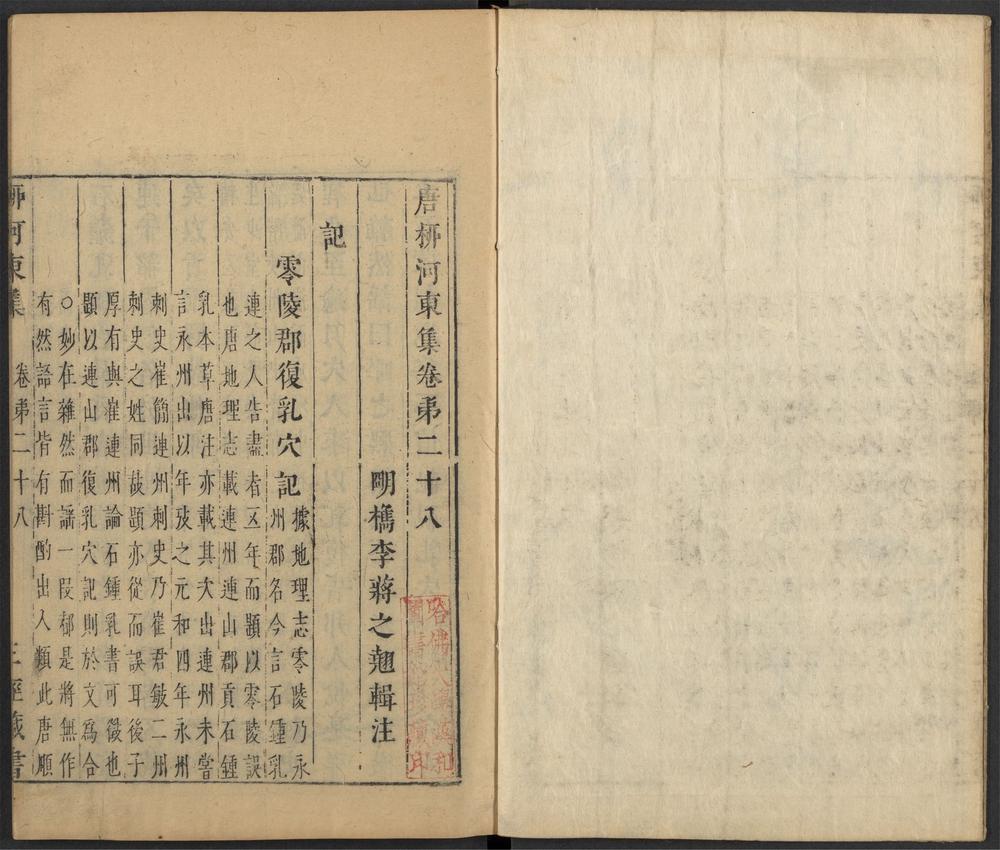 唐桺河東集卷弟二十八
明檇李蔣之翹輯注
哈佛大學漢和
圖書館珍藏印
記
零陵郡復乳穴記
據地理志零陵乃永
州郡名今言石鍾乳
連之人告盡者五年而題以零陵誤
也唐地理志載連州連山郡貢石鍾
乳本草唐注亦載其次出連州未嘗
言永州出以年攷之元和四年永州
刺史崔簡連州刺史乃崔君敏二州
刺史之姓同故題亦從而誤耳後子
厚有與崔連州論石鍾乳書可徵也
題以連山郡復乳穴記則於文爲合
○妙在雜然而謠一段都是將無作
有然語言皆有斟酌出入類此唐順
桺河東集 卷弟二十八 三徑藏書